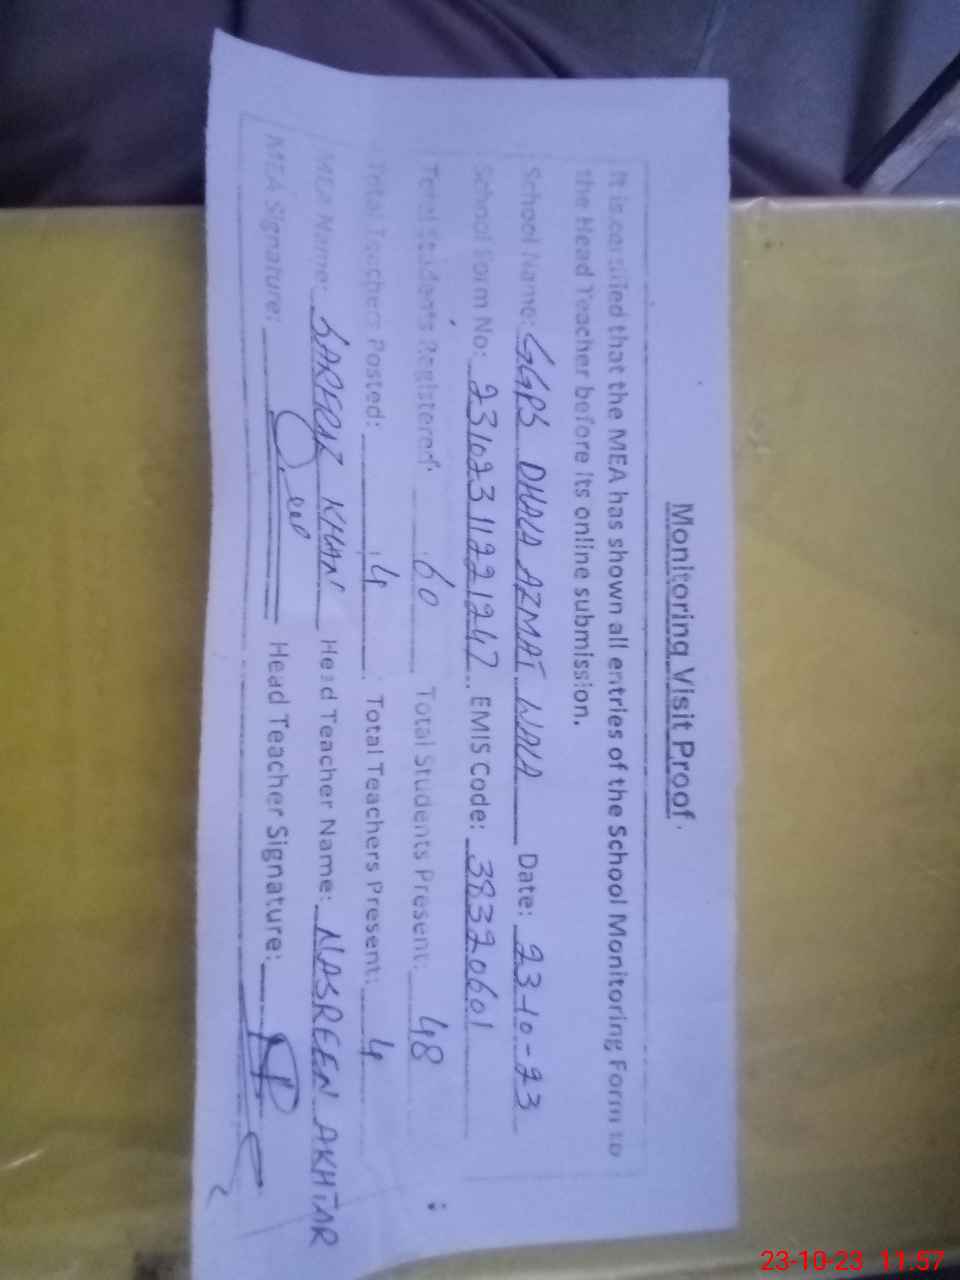 Monitoring Visit Proof.
It is certified that the MEA has shown all entries of the School Monitoring Form to
the Head Teacher before its online submission.
School Name: GGPS DHALA AZMAT WALA Date: 23-10-23
School Form No: 23102311221247 EMIS Code: 38320601
Total Students Registered: 60 Total Students Present: 48
Total Teachers Posted: 4 Total Teachers Present: 4
MEA Name: SARFRAZ KHAN Head Teacher Name: NASREEN AKHTAR
MEA Signature: Head Teacher Signature:
23-10-23 11:57